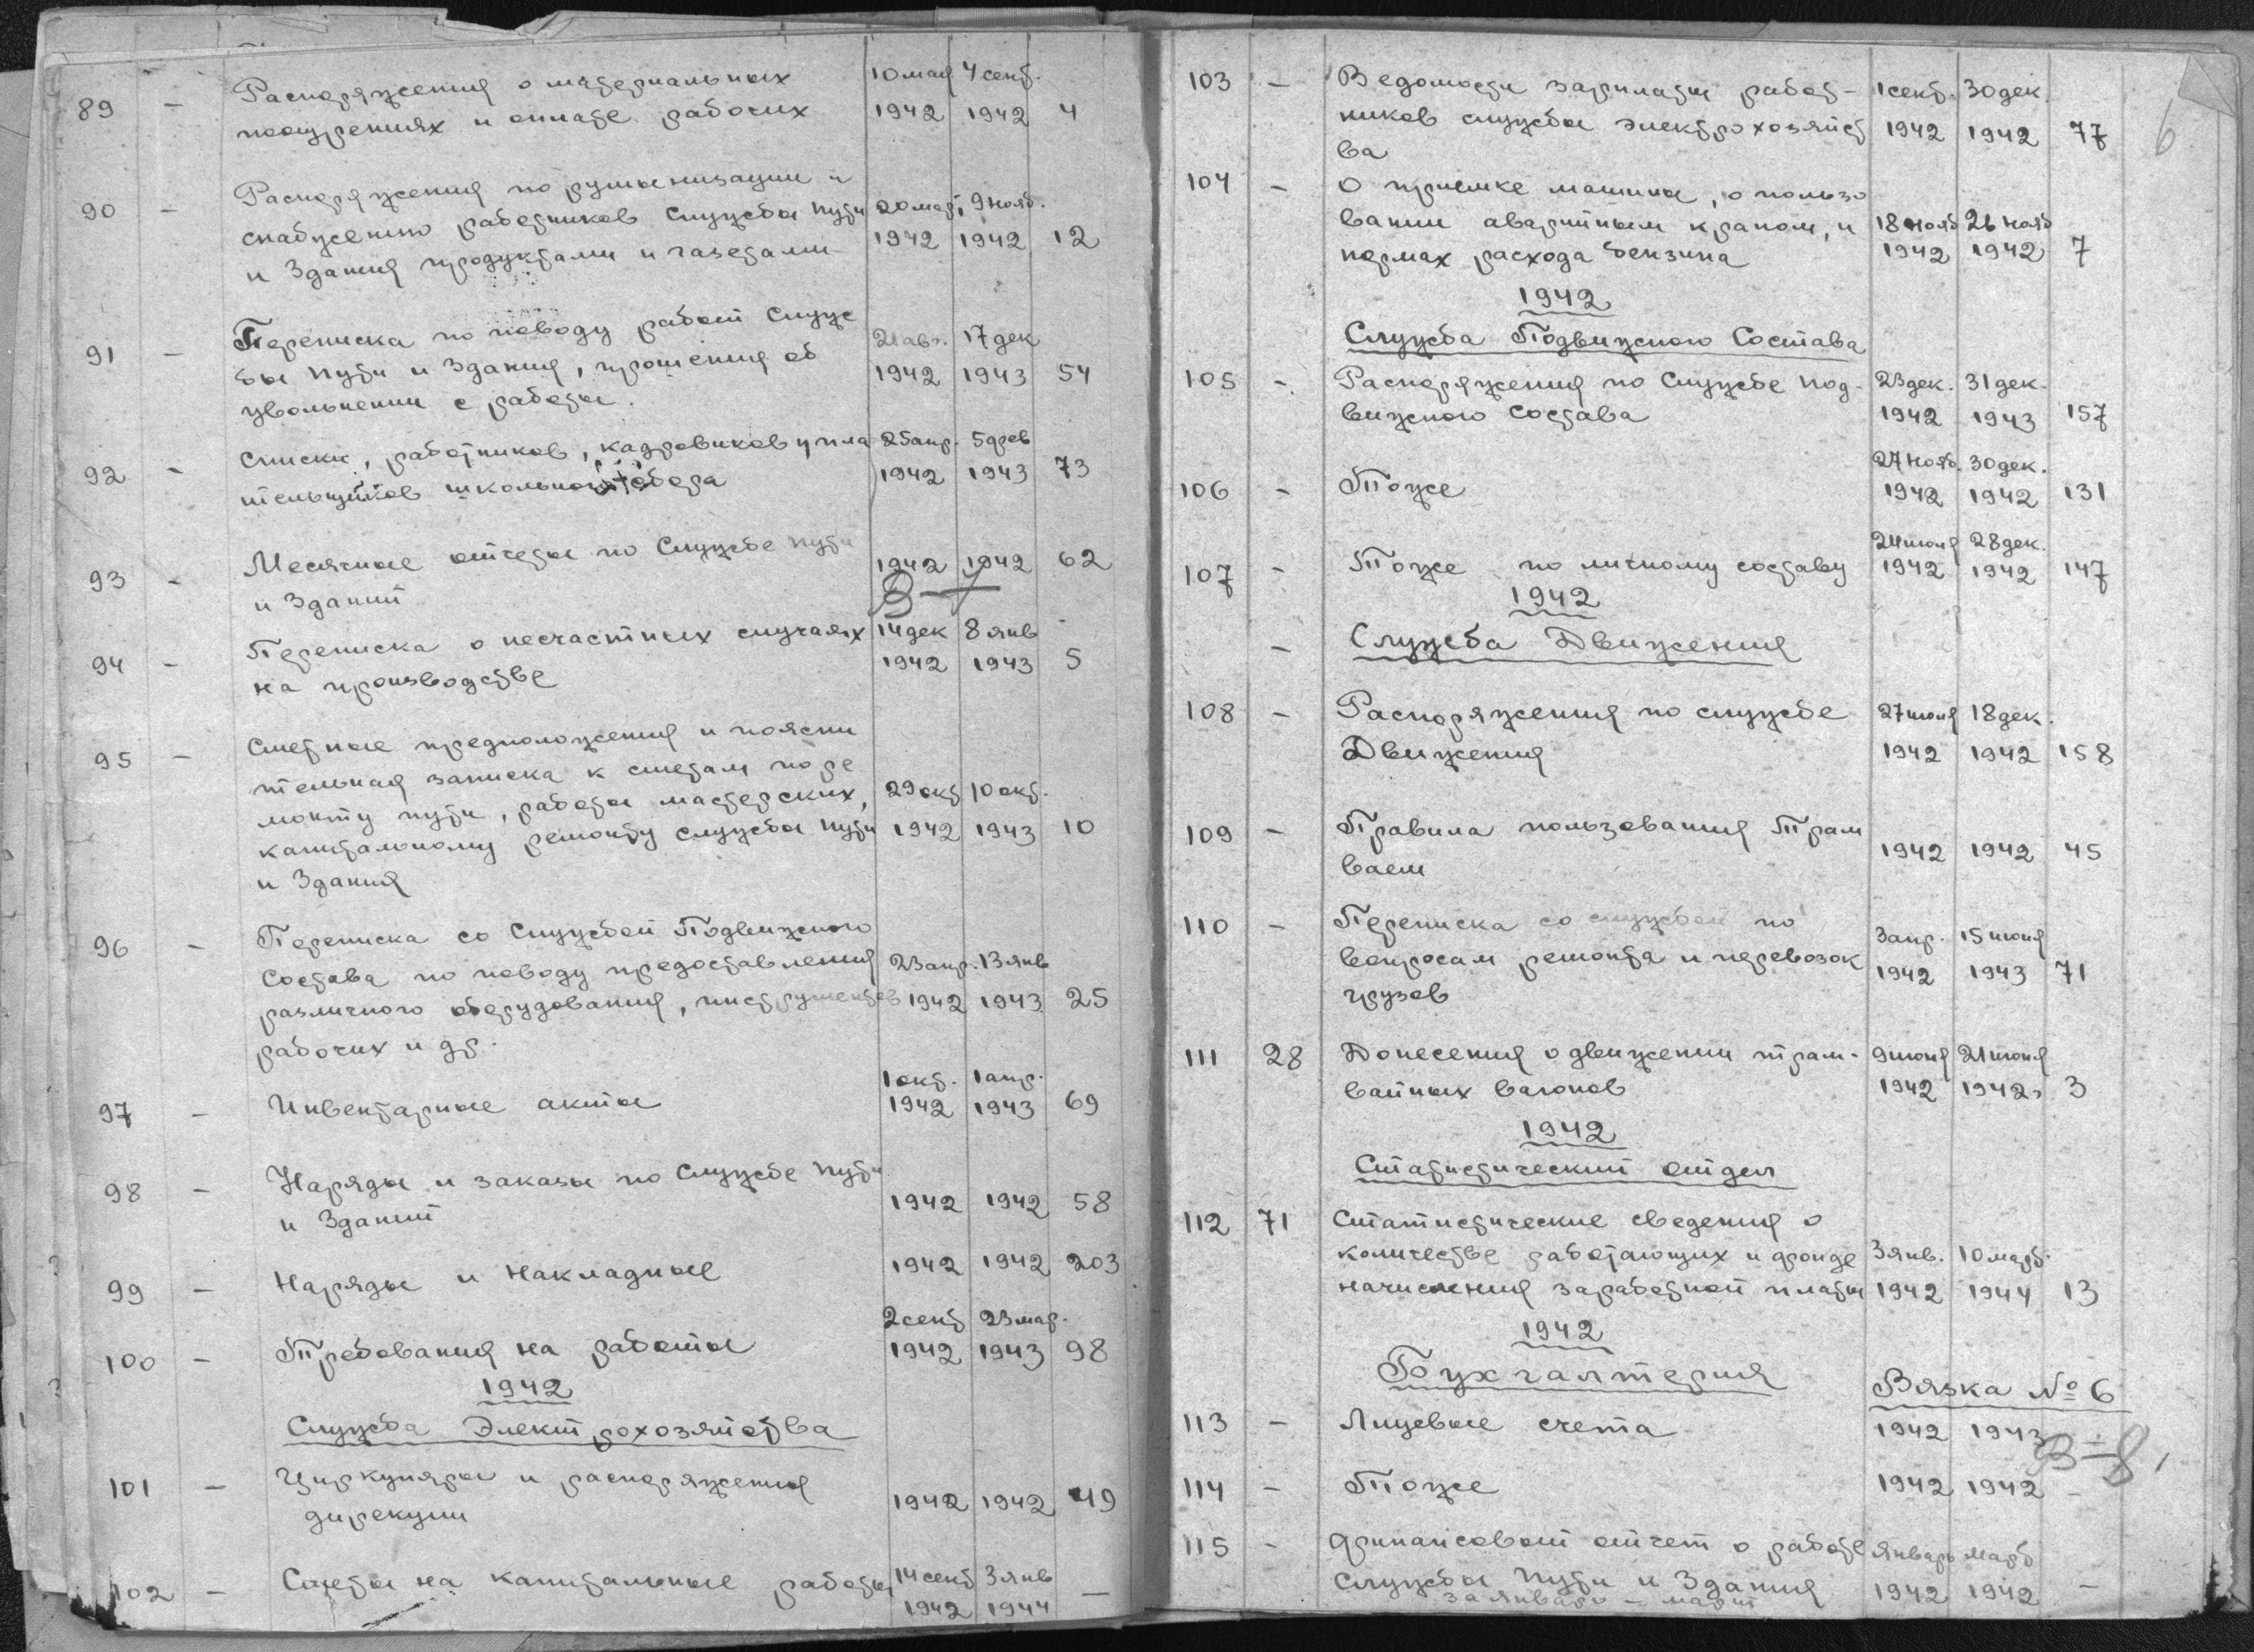 89 – Распоряжения о материальных 10 мая 4 сент.
поощрениях и оплате рабочих 1942 1942 4
90 – Распоряжения по румынизации и
снабжению работников Службы Пути 20 март. 9 нояб.
и Здания продуктами и газетами 1942 1942 12
91 – Переписка по поводу работ Служ
бы Пути и Здания, прошения об 21 авг. 17 дек
увольнении с работы. 1942 1943 54
92 – Списки, работников, кадровиков, пла 25 апр. 5 фев
тельщиков школьного сбора 1942 1943 73
93 – Месячные отчеты по Службе Пути 1942 1942 62
и Зданий
94 – Переписка о несчастных случаях 14 дек 8 янв
на производстве 1942 1943 5
95 – Сметные предположения и поясни
тельная записка к сметам по ре
монту пути, работы мастерских, 29 окт 10 окт.
капитальному ремонту службы Пути 1942 1943 10
и Здания
96 – Переписка со Службой Подвижного
Состава по поводу предоставления 23 апр. 13 янв
различного оборудования, инструментов 1942 1943 25
рабочих и др.
97 – Инвентарные акты 1 окт. 1 апр.
1942 1943 69
98 – Наряды и заказы по Службе Пути
и Зданий 1942 1942 58
99 – Наряды и Накладные 1942 1942 203
100 – Требования на работы 2 сент 23 мар.
1942 1943 98
1942
Служба Электрохозяйства
101 – Циркуляры и распоряжения
дирекции 1942 1942 49
102 – Сметы на капитальные работы 14 сент 3 янв
1942 1944 –
6
103 – Ведомости зарплаты работ- 1 сент. 30 дек.
ников службы электрохозяйст 1942 1942 77
ва
104 – О приемке машины, о пользо
вании аварийным краном, и 18 нояб 26 нояб
нормах расхода бензина 1942 1942 7
1942
Служба Подвижного Состава
105 – Распоряжения по Службе Под- 23 дек. 31 дек.
вижного Состава 1942 1943 157
106 – Тоже 27 нояб. 30 дек.
1942 1942 131
107 – Тоже по личному составу 24 июня 28 дек.
1942 1942 147
1942
– Служба Движения
108 – Распоряжения по службе 27 июня 18 дек.
Движения 1942 1942 158
109 – Правила пользования Трам
ваем 1942 1942 45
110 – Переписка со службой по
вопросам ремонта и перевозок 3 апр. 15 июня
грузов 1942 1943 71
111 28 Донесения о движении трам- 9 июня 21 июня
вайных вагонов 1942 1942 3
1942
Статистический отдел
112 71 Статистические сведения о
количестве работающих и фонде 3 янв. 10 март.
начисления заработной платы 1942 1944 13
1942
Бухгалтерия
Вязка № 6
113 – Лицевые счета 1942 1943 –
114 – Тоже 1942 1942 –
115 – Финансовый отчет о работе январь март
Службы Пути и Здания 1942 1942 –
за январь – март